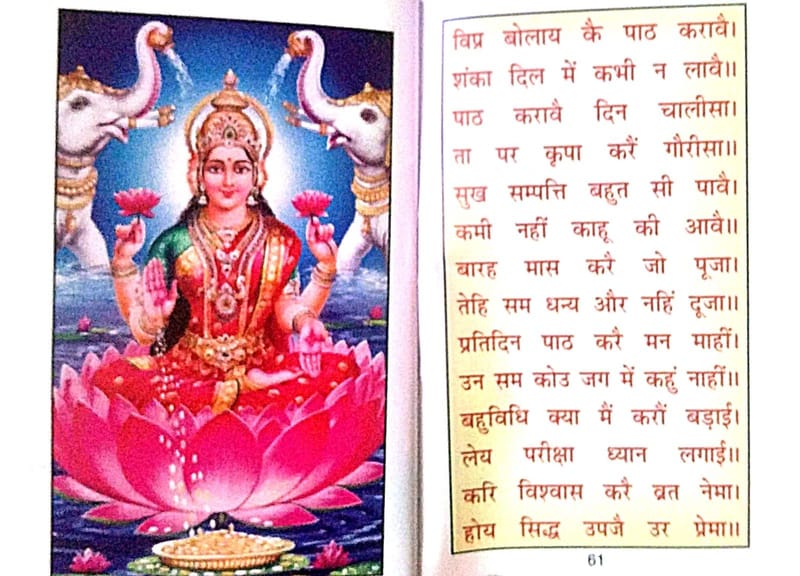 विप्र बोलाय कै पाठ करावै।
शंका दिल में कभी न लावै॥
पाठ करावै दिन चालीसा।
ता पर कृपा करैं गौरीसा॥
सुख सम्पत्ति बहुत सी पावै।
कमी नहीं काहू की आवै॥
बारह मास करै जो पूजा।
तेहि सम धन्य और नहिं दूजा॥
प्रतिदिन पाठ करै मन माहीं।
उन सम कोउ जग में कहुं नाहीं॥
बहुविधि क्या मैं करौं बड़ाई।
लेय परीक्षा ध्यान लगाई॥
करि विश्वास करै व्रत नेमा।
होय सिद्ध उपजै उर प्रेमा॥
61